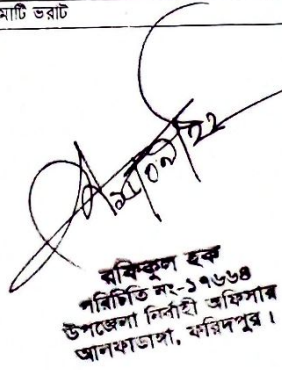 মাটি ভরাট
রফিকুল হক
পরিচিতি নং-১৭৬৬৪
উপজেলা নির্বাহী অফিসার
আলফাডাঙ্গা, ফরিদপুর।